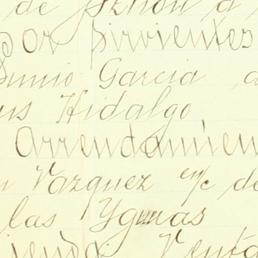 de
por sirvientes
Junio Garcia
us Hidalgo
Arrendamien
Vazquez c/c de
las Ygnas
ienda Venta